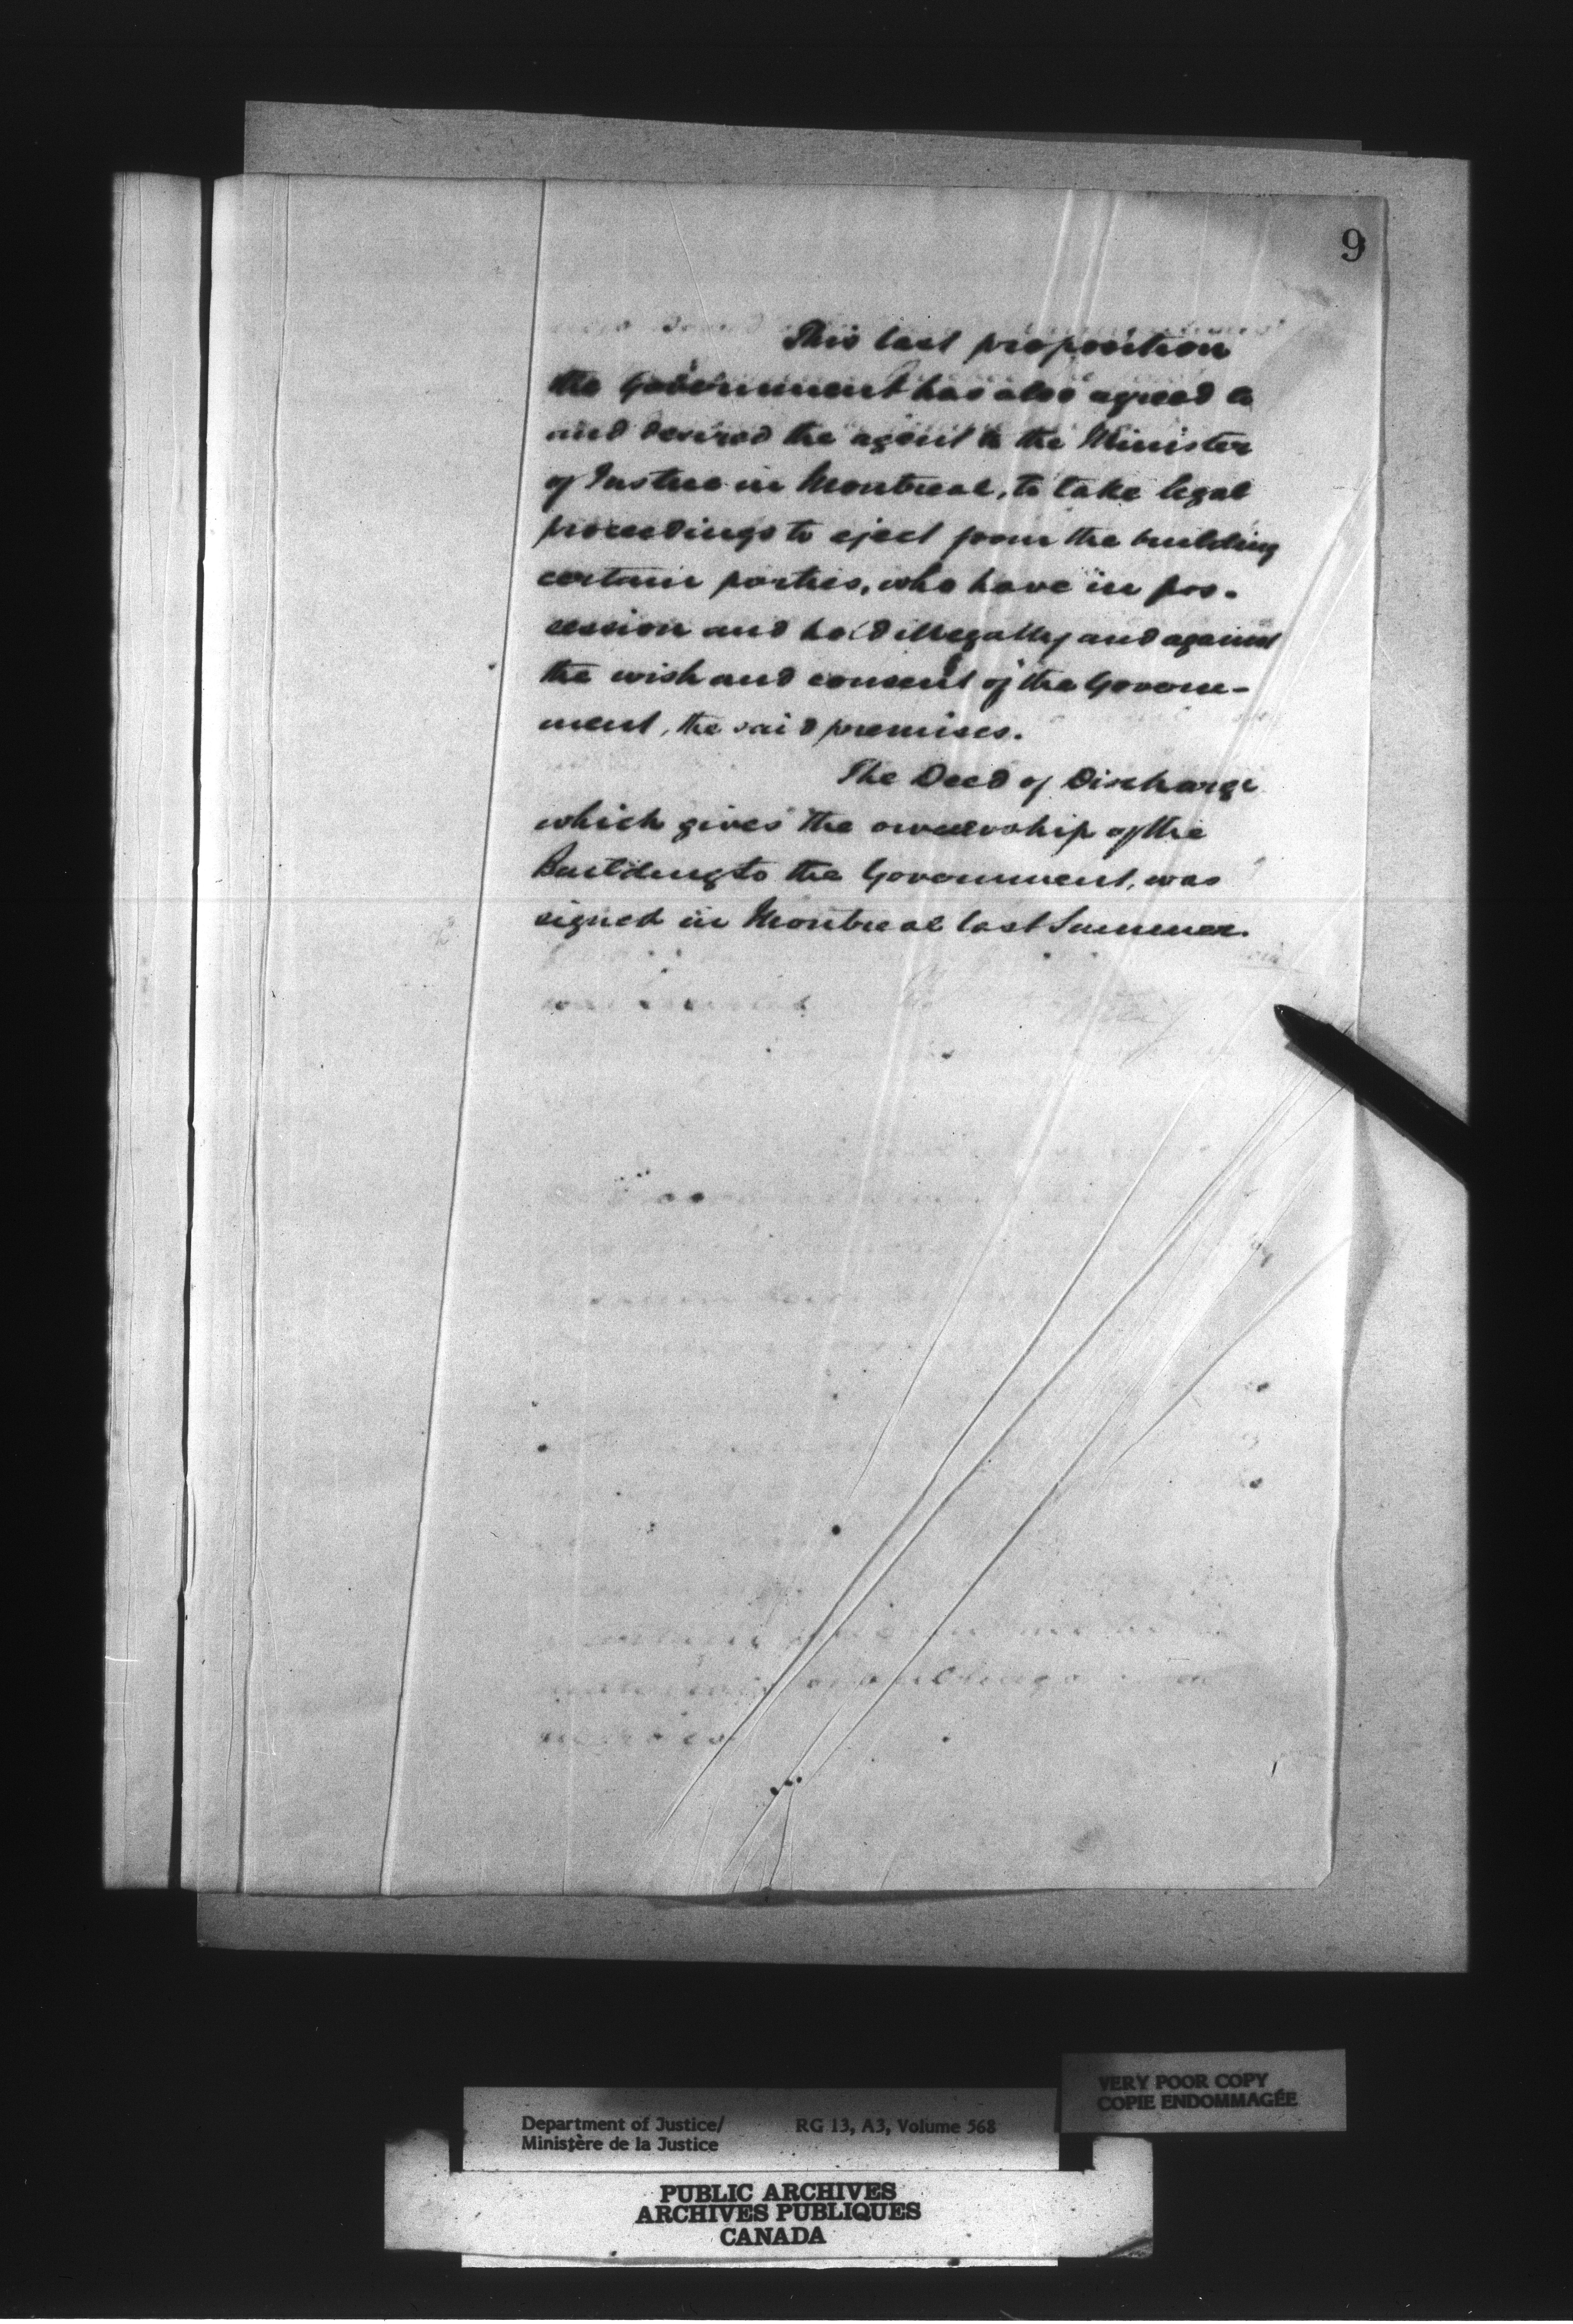 9
This last proposition
the Government has also agreed to
and desired the agent to the Minister
of Justice in Montreal, to take legal
proceedings to eject from the building
certain parties, who have in pos-
session and hold illegally and against
the wish and consent of the Govern-
ment, the said premises.
The Deed of Discharge
which gives the ownership of the
Building to the Government, was
signed in Montreal last Summer.
VERY POOR COPY
COPIE ENDOMMAGÉE
Department of Justice/ RG 13, A3, Volume 568
Ministère de la Justice
PUBLIC ARCHIVES
ARCHIVES PUBLIQUES
CANADA